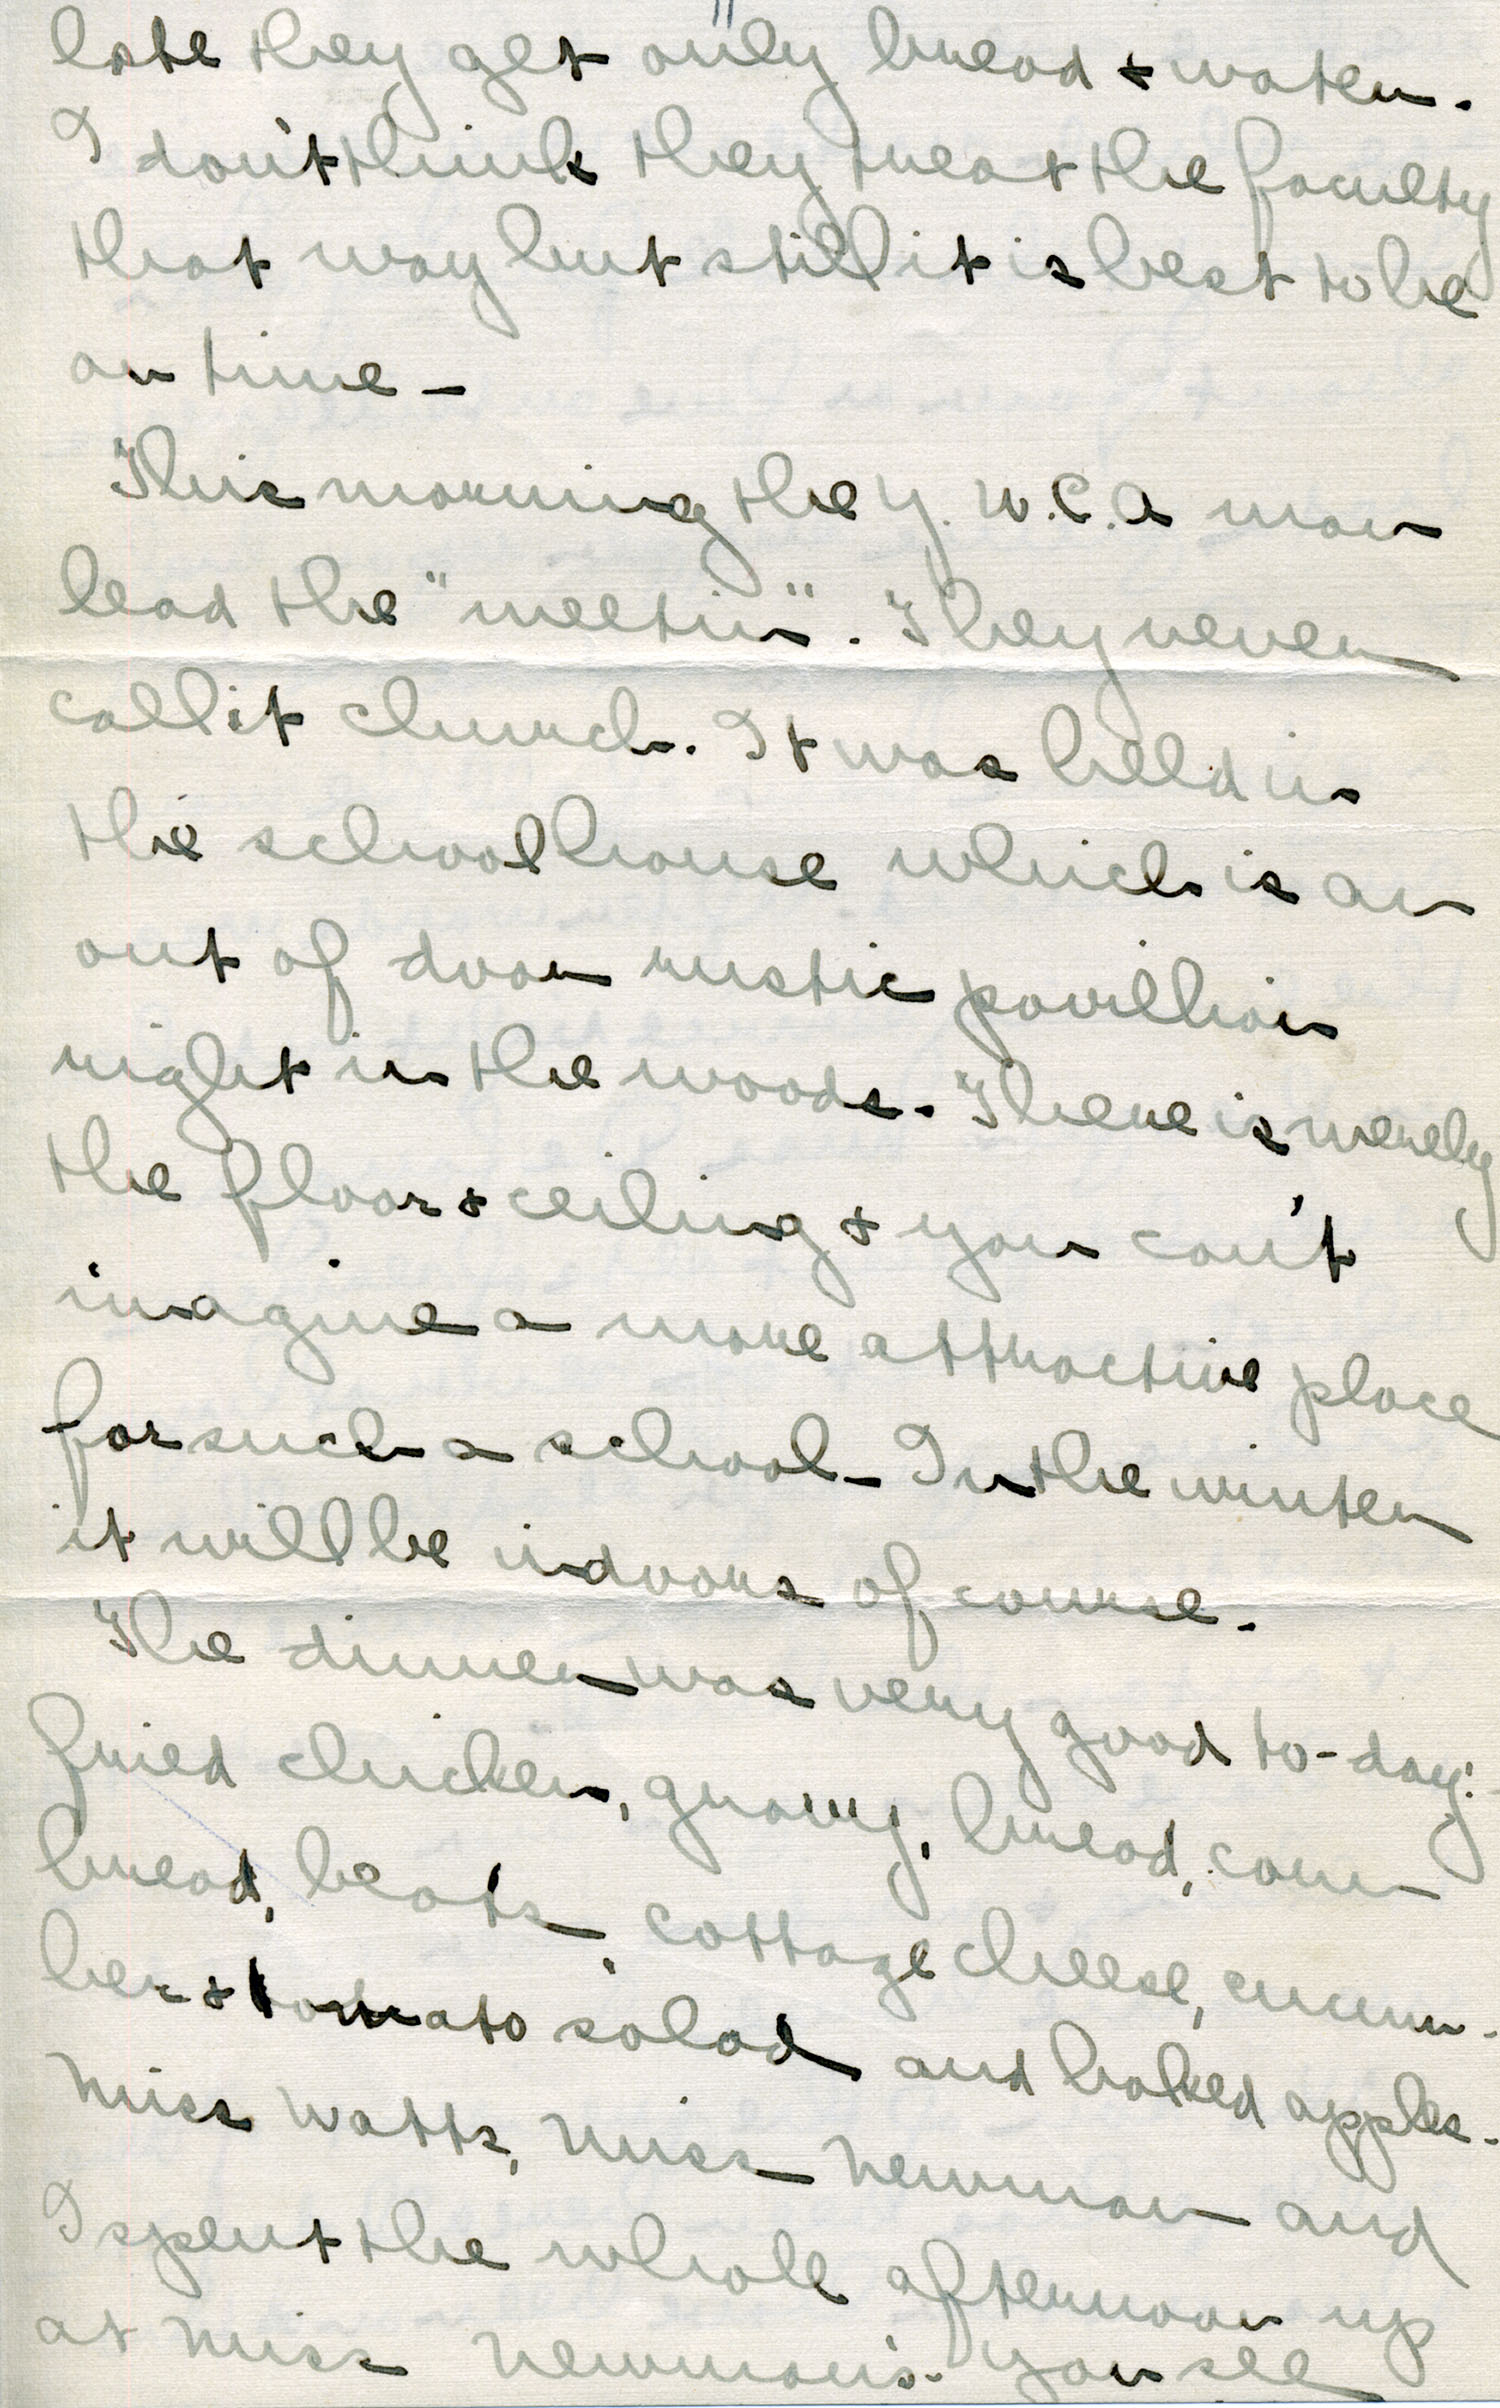 late they get only bread & water.
I don't think they treat the faculty
that way but still it is best to be
on time –
This morning the Y.W.C.A man
lead the "meetin". They never
call it church. It was held in
the schoolhouse which is an
out of door rustic pavillion
right in the woods. There is merely
the floor & ceiling & you can't
imagine a more attractive place
for such a school – In the winter
it will be indoors of course.
The dinner was very good to-day:
fried chicken, gravy, bread, corn
bread, beats, cottage cheese, cucum-
ber & tomato salad and baked apples.
Miss Watts, Miss Newman and
I spent the whole afternoon up
at Miss Newman's. You see